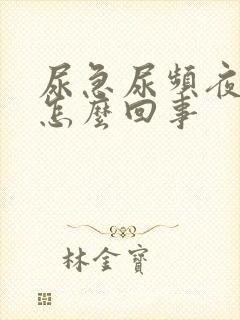 尿急尿頻夜
怎麼回事
林金寶